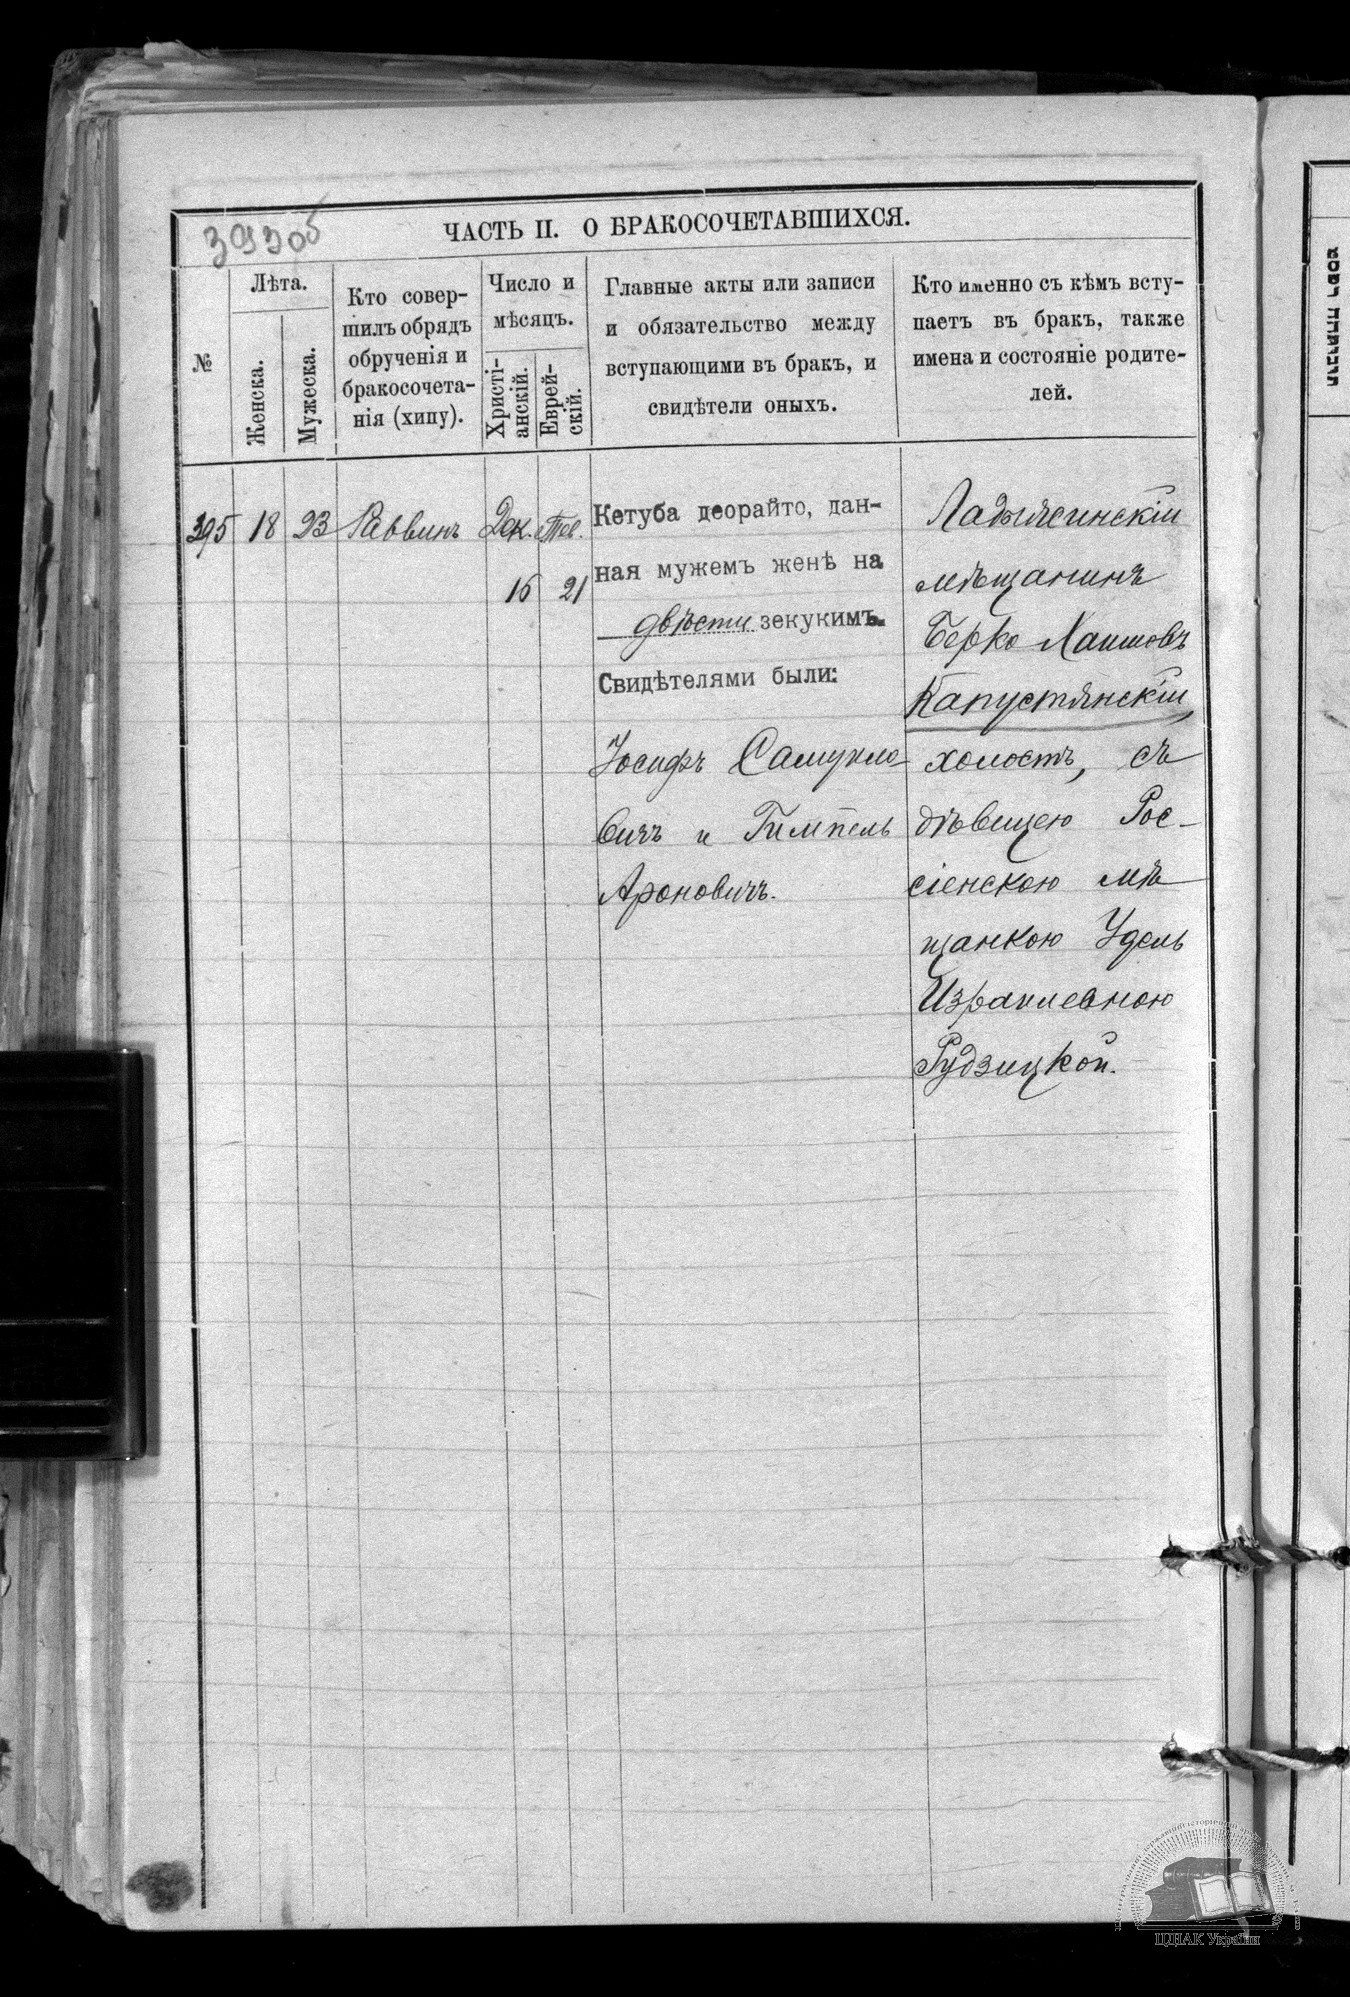 393об
ЧАСТЬ II. О БРАКОСОЧЕТАВШИХСЯ.
№
Лѣта.
Женска.
Мужеска.
Кто совер-
шилъ обрядъ
обрученія и
бракосочета-
нія (хипу).
Число и
мѣсяцъ.
Христі-
анскій.
Еврей-
скій.
Главные акты или записи
и обязательство между
вступающими въ бракъ, и
свидѣтели оныхъ.
Кто именно съ кѣмъ всту-
паетъ въ бракъ, также
имена и состояніе родите-
лей.
395
18
23
Раввинъ
Дек.
16
Тев.
21
Кетуба деорайто, дан-
ная мужемъ женѣ на
двѣсти зекукимъ.
Свидѣтелями были:
Іосифъ Самуило-
вичъ и Гимпель
Ароновичъ.
Ладыжинскій
мѣщанинъ
Берко Хаимовъ
Капустянскій,
холостъ, съ
дѣвицею Рос-
сіенскою мѣ-
щанкою Удель
Израилевною
Рудзицкой.
ЦДІАК України